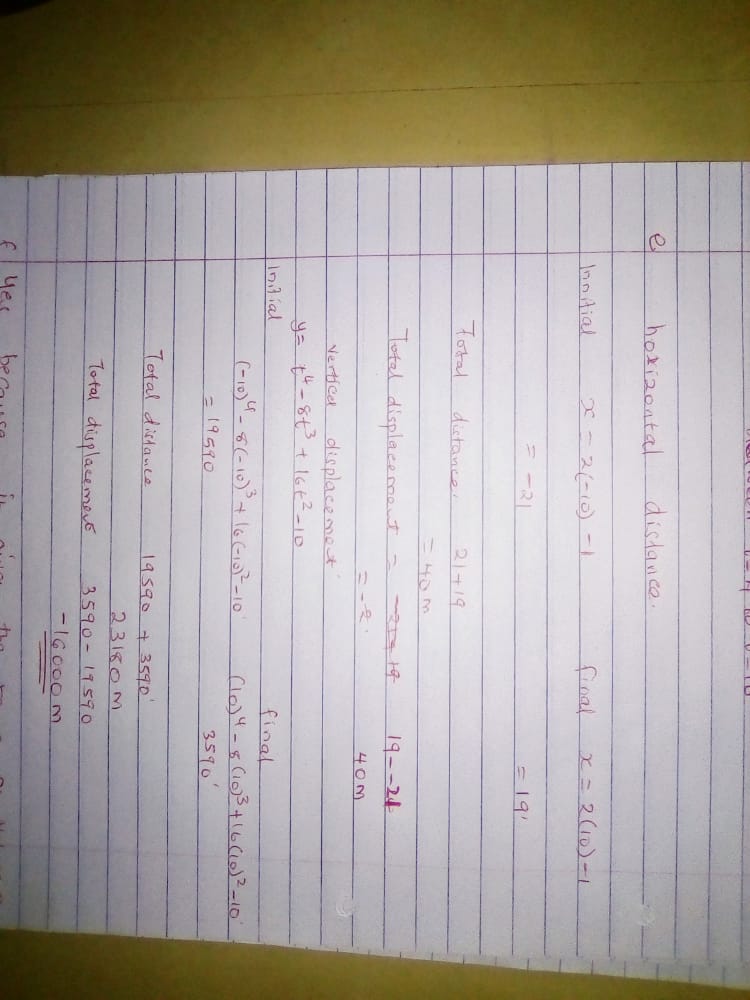 e horizontal distance.
Innitial x = 2(-10) -1 final x = 2(10) -1
= -21 = 19
Total distance. 21 + 19
= 40 m
Total displacement = 19 19 - -21
= -2. 40 m
vertical displacement
y = t⁴ - 8t³ + 16t² - 10
Initial final
(-10)⁴ - 8(-10)³ + 16(-10)² - 10 (10)⁴ - 8(10)³ + 16(10)² - 10
= 19590 3590
Total distance 19590 + 3590
23180 m
Total displacement 3590 - 19590
-16000 m
f Yes because it gives the